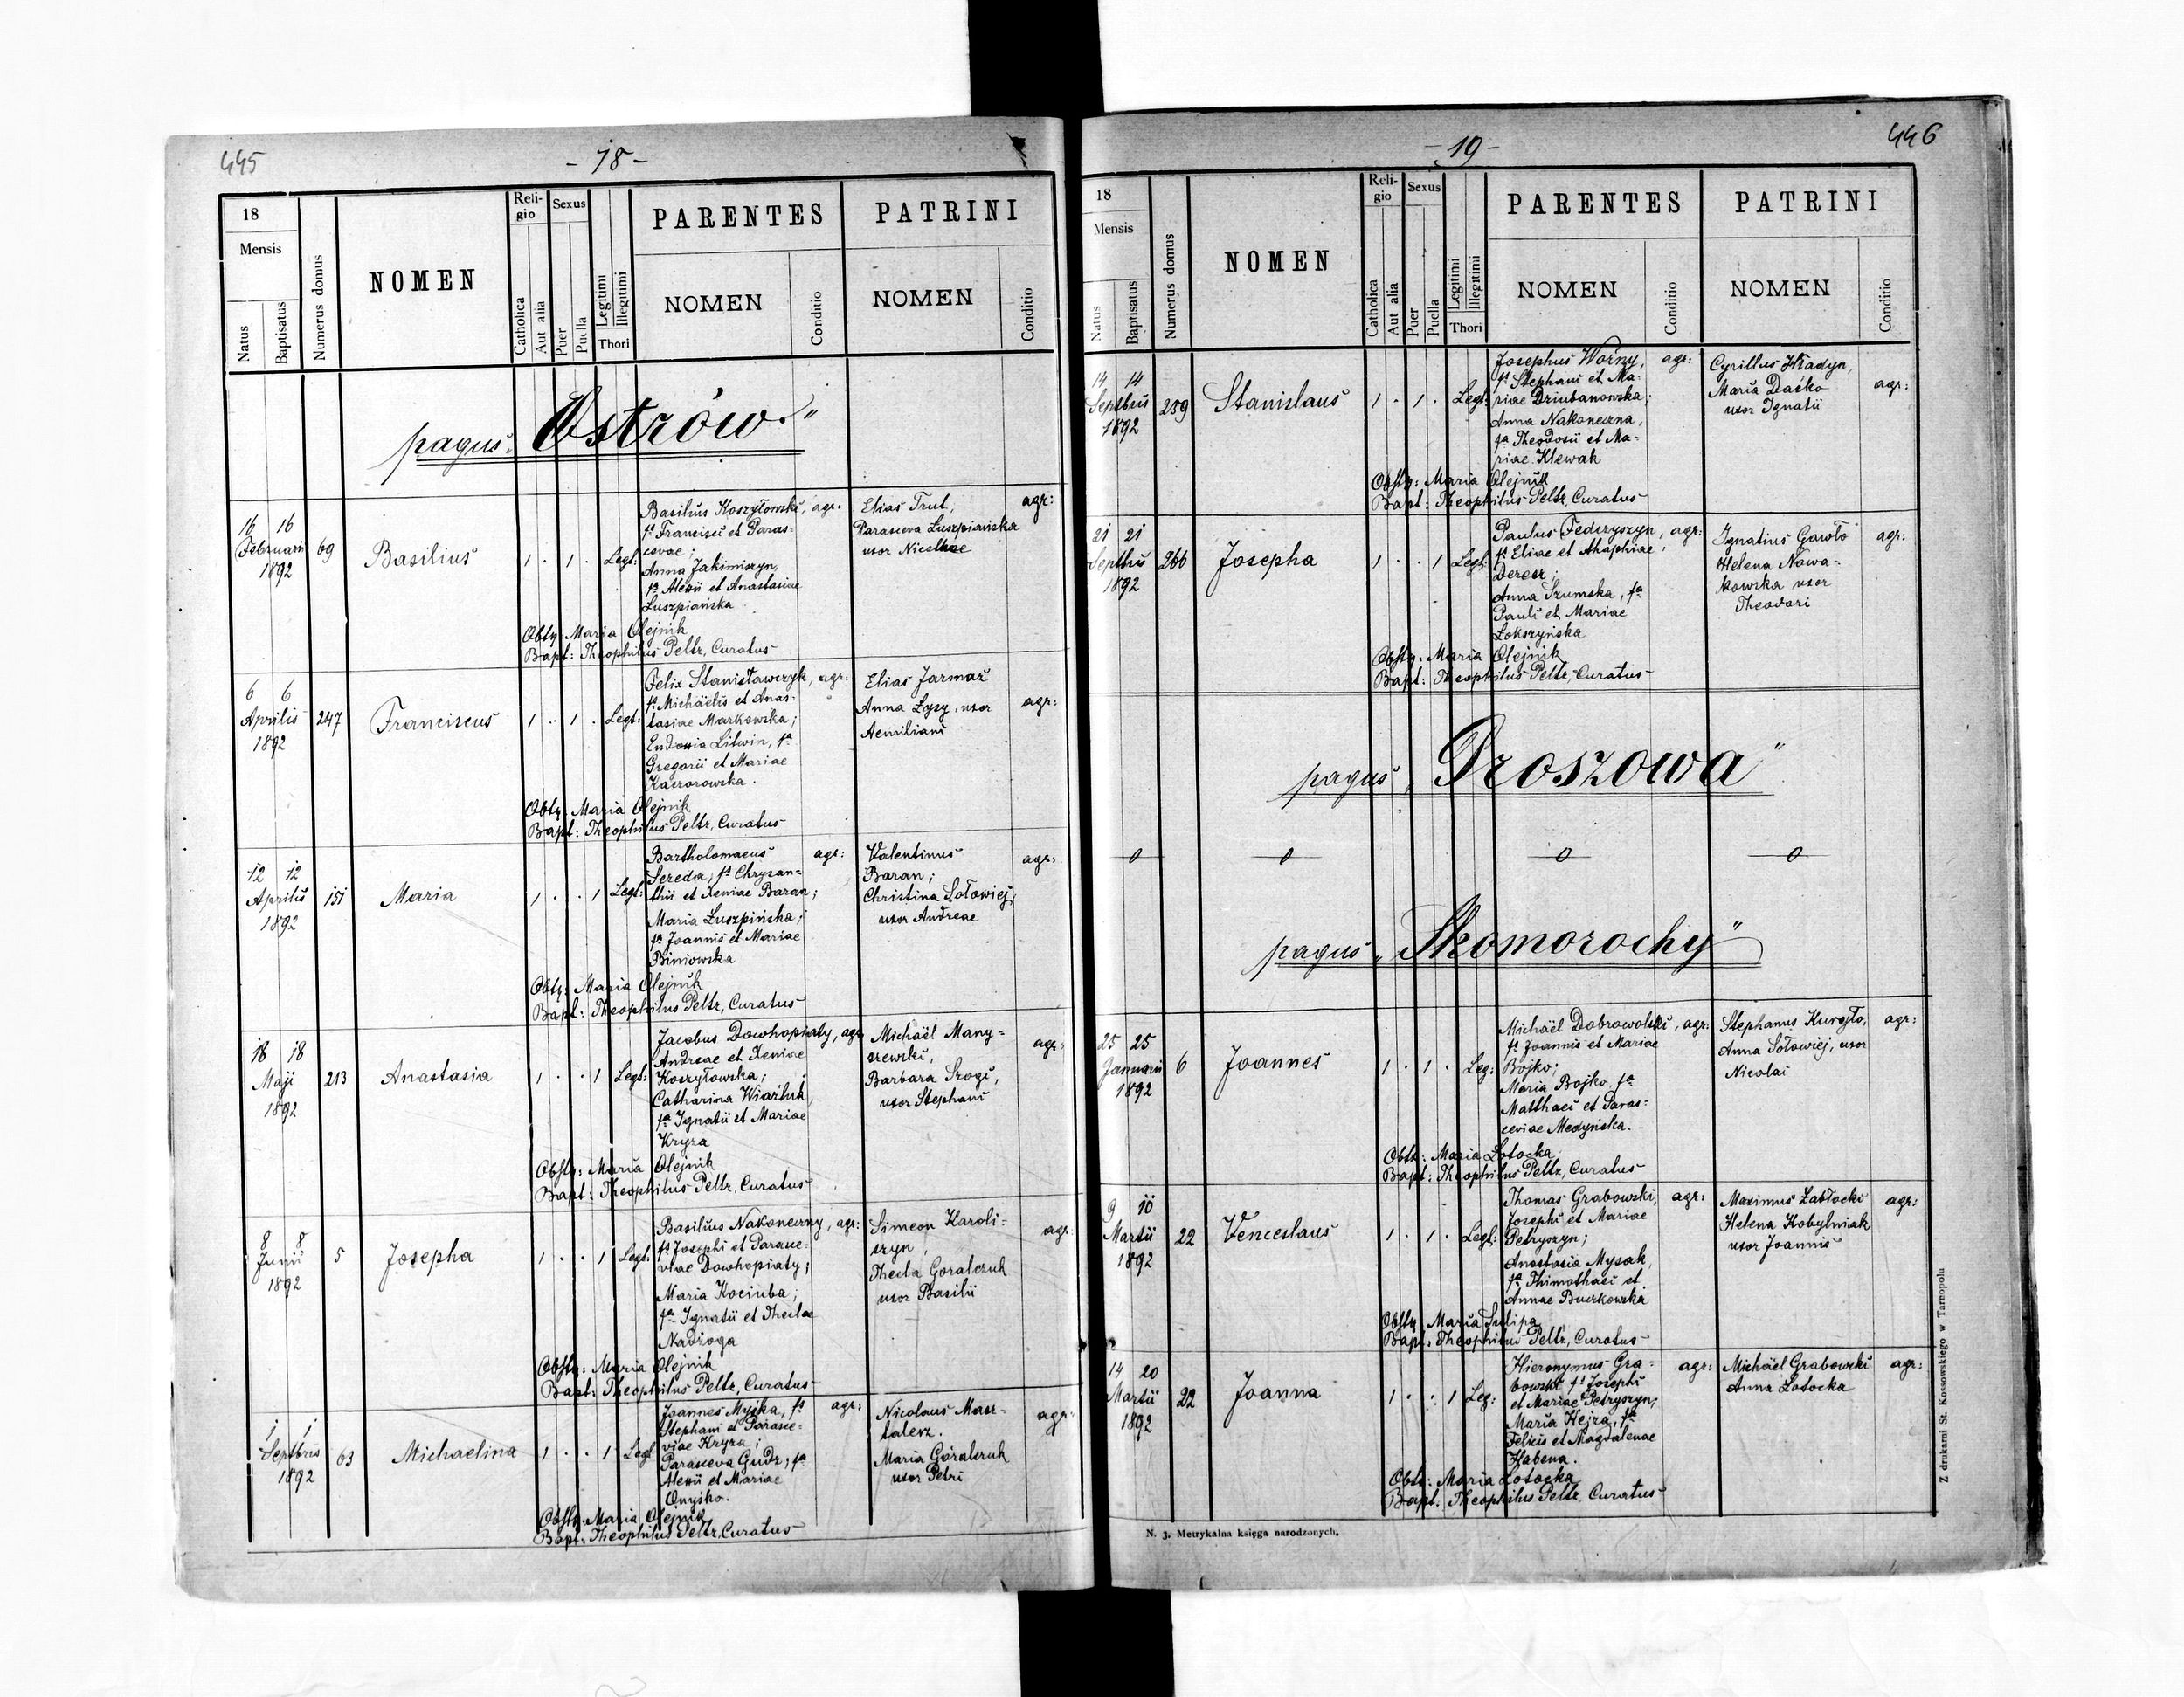 445
- 18 -
18
Mensis
Natus
Baptisatus
Numerus domus
NOMEN
Religio
Catholica
Aut alia
Sexus
Puer
Puella
Legitimi
Illegitimi
Thori
PARENTES
NOMEN
Conditio
PATRINI
NOMEN
Conditio
pagus „Ostrów"
16 16
Februarii
1892
69
Basilius
1 . 1 . Legt:
Basilius Koszyłowski, agr.
fs Francisci et Paras-
cevae;
Anna Jakimiszyn,
fa Alexii et Anastasiae
Łuszpiańska
Elias Trut,
Parasceva Łuszpiańska
uxor Nicolae
agr:
Obstz. Maria Olejnik
Bapt: Theophilus Peltz, Curatus
6 6
Aprilis
1892
247
Franciscus
1 . 1 . Legt:
Felix Stanisławczyk, agr:
fs Michäelis et Anas-
tasiae Markowska;
Eudoxia Litwin, fa
Gregorii et Mariae
Kaczorowska.
Elias Jarmar
Anna Łysy, uxor
Aemiliani
agr:
Obstz. Maria Olejnik
Bapt: Theophilus Peltz, Curatus
12 12
Aprilis
1892
151
Maria
1 . . 1 Legt:
Bartholomaeus agr:
Sereda, fs Chrysan-
thii et Xeniae Baran;
Maria Łuszpińska;
fa Joannis et Mariae
Biniowska
Valentinus
Baran;
Christina Sołowiej,
uxor Andreae
agr:
Obstz: Maria Olejnik
Bapt: Theophilus Peltz, Curatus
18 18
Maji
1892
213
Anastasia
1 . . 1 Legt:
Jacobus Dowhopiaty, agr.
Andreae et Xeniae
Koszyłowska;
Catharina Wiartuk,
fa Ignatii et Mariae
Kryza
Michäel Many-
szewski,
Barbara Srogi,
uxor Stephani
agr:
Obstz: Maria Olejnik
Bapt: Theophilus Peltz, Curatus
8 8
Junii
1892
5
Josepha
1 . . 1 Legt:
Basilius Nakoneczny, agr:
fs Josephi et Parasce-
viae Dowhopiaty;
Maria Kociuba;
fa Ignatii et Theclae
Nadroga
Simeon Karoli-
szyn,
Thecla Goralczuk
uxor Basilii
agr.
Obstz: Maria Olejnik
Bapt: Theophilus Peltz, Curatus
1 1
Septbris
1892
63
Michaelina
1 . . 1 Legt
Joannes Myśka, fs agr:
Stephani et Parasce-
viae Kryza;
Parasceva Gudz, fa
Alexii et Mariae
Onyśko.
Nicolaus Masz-
talerz.
Maria Góralczuk
uxor Petri
agr:
Obstz. Maria Olejnik
Bapt: Theophilus Peltz, Curatus
446
- 19 -
18
Mensis
Natus
Baptisatus
Numerus domus
NOMEN
Religio
Catholica
Aut alia
Sexus
Puer
Puella
Legitimi
Illegitimi
Thori
PARENTES
NOMEN
Conditio
PATRINI
NOMEN
Conditio
14 14
Septbris
1892
259
Stanislaus
1 . 1 . Legt:
Josephus Woźny, agr:
fs Stephani et Ma-
riae Dziubanowska;
Anna Nakoneczna,
fa Theodosii et Ma-
riae Klewak
Cyrillus Hładyn,
Maria Daćko
uxor Ignatii
agr:
Obstz: Maria Olejnik
Bapt: Theophilus Peltz, Curatus
21 21
Septbris
1892
266
Josepha
1 . . 1 Legt:
Paulus Fedczyszyn, agr:
fs Eliae et Ahaphiae
Deresz;
Anna Szumska, fa
Pauli et Mariae
Łokszyńska
Ignatius Gawło
Helena Nowa-
kowska uxor
Theodori
agr:
Obstz. Maria Olejnik
Bapt: Theophilus Peltz, Curatus
pagus „Droszowa"
0 0 0 0
pagus „Skomorochy"
25 25
Januarii
1892
6
Joannes
1 . 1 . Leg:
Michäel Dobrowolski, agr:
fs Joannis et Mariae
Bojko;
Maria Bojko, fa
Matthaei et Paras-
ceviae Medyńska.
Stephanus Kuryło,
Anna Sołowiej, uxor
Nicolai
agr:
Obstz: Maria Łotocka
Bapt: Theophilus Peltz, Curatus
9 10
Martii
1892
22
Venceslaus
1 . 1 . Legt:
Thomas Grabowski, agr:
Josephi et Mariae
Petryszyn;
Anastasia Mysak,
fa Thimothaei et
Annae Buczkowska
Maximus Zabłocki
Helena Kobylniak
uxor Joannis
agr:
Obstz Maria Tulipa
Bapt: Theophilus Peltz, Curatus
14 20
Martii
1892
22
Joanna
1 . . 1 Leg:
Hieronymus Gra- agr:
bowski fs Josephi
et Mariae Petryszyn;
Maria Hejza, fa
Felicis et Magdalenae
Habena.
Michäel Grabowski
Anna Łotocka
agr:
Obstz: Maria Łotocka
Bapt. Theophilus Peltz, Curatus
N. 3. Metrykalna księga narodzonych.
Z drukarni St. Kossowskiego w Tarnopolu